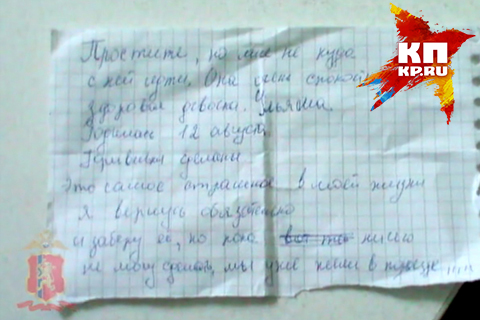 Простите, но мне не куда
с ней идти. Она очень спокой
здоровая девочка. Ульяна.
Родилась 12 августа
Прививки сделаны.
Это самое страшное в моей жизни
Я вернусь обязательно
и заберу её, но пока ничего
не могу сделать, мы уже жили в
КП
KP.RU